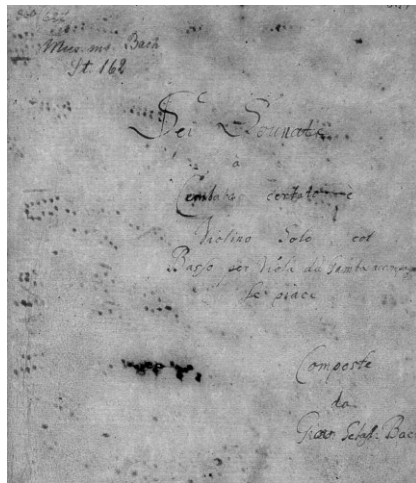 Mus. ms. Bach
St. 162
Sei Sounate
à
Cembalo certato e
Violino Solo col
Basso per Viola da Gamba accomp
se piace
Composte
da
Giov. Sebast. Bac